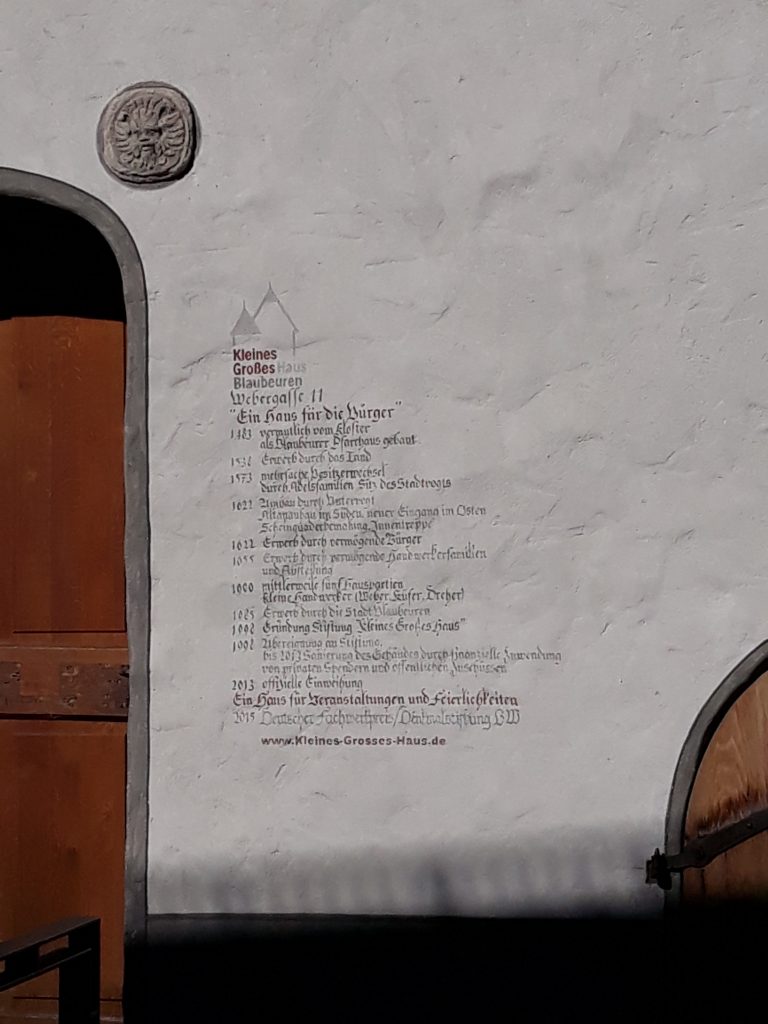 Kleines
Großes Haus
Blaubeuren
Webergasse 11
"Ein Haus für die Bürger"
1483 vermutlich vom Kloster
als Blaubeurer Pfarrhaus gebaut
Erwerb durch das Land
1573 mehrfache Besitzerwechsel
durch Adelsfamilien Sitz des Stadtvogts
Umbau durch
im Süden, neuer Eingang im Osten
Innentreppe
1622 Erwerb durch vermögende Bürger
Erwerb durch vermögende Handwerkerfamilien
und
mittlerweile fünf Hausparteien
kleine Handwerker (Weber, Küfer, Dreher)
Erwerb durch die Stadt Blaubeuren
Gründung Stiftung "Kleines Großes Haus"
Übereignung an Stiftung,
bis 2013 Sanierung des Gebäudes durch finanzielle Zuwendung
von privaten Spendern und öffentlichen Zuschüssen
2013 offizielle Einweihung
Ein Haus für Veranstaltungen und Feierlichkeiten
2015 Deutscher Fachwerkpreis/Denkmalstiftung BW
www.Kleines-Grosses-Haus.de